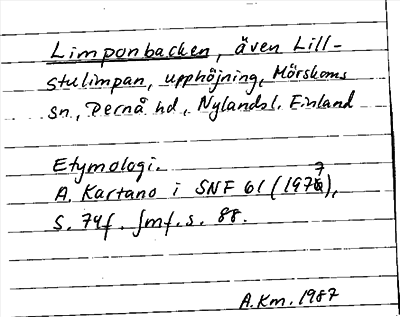 Limponbacken, även Lill-
stulimpan, upphöjning, Mörskoms
sn, Pernå hd, Nylandsl. Finland
Etymologi.
A. Kartano i SNF 61 (1977),
s. 74f. Jmf. s. 88.
A.Km. 1987